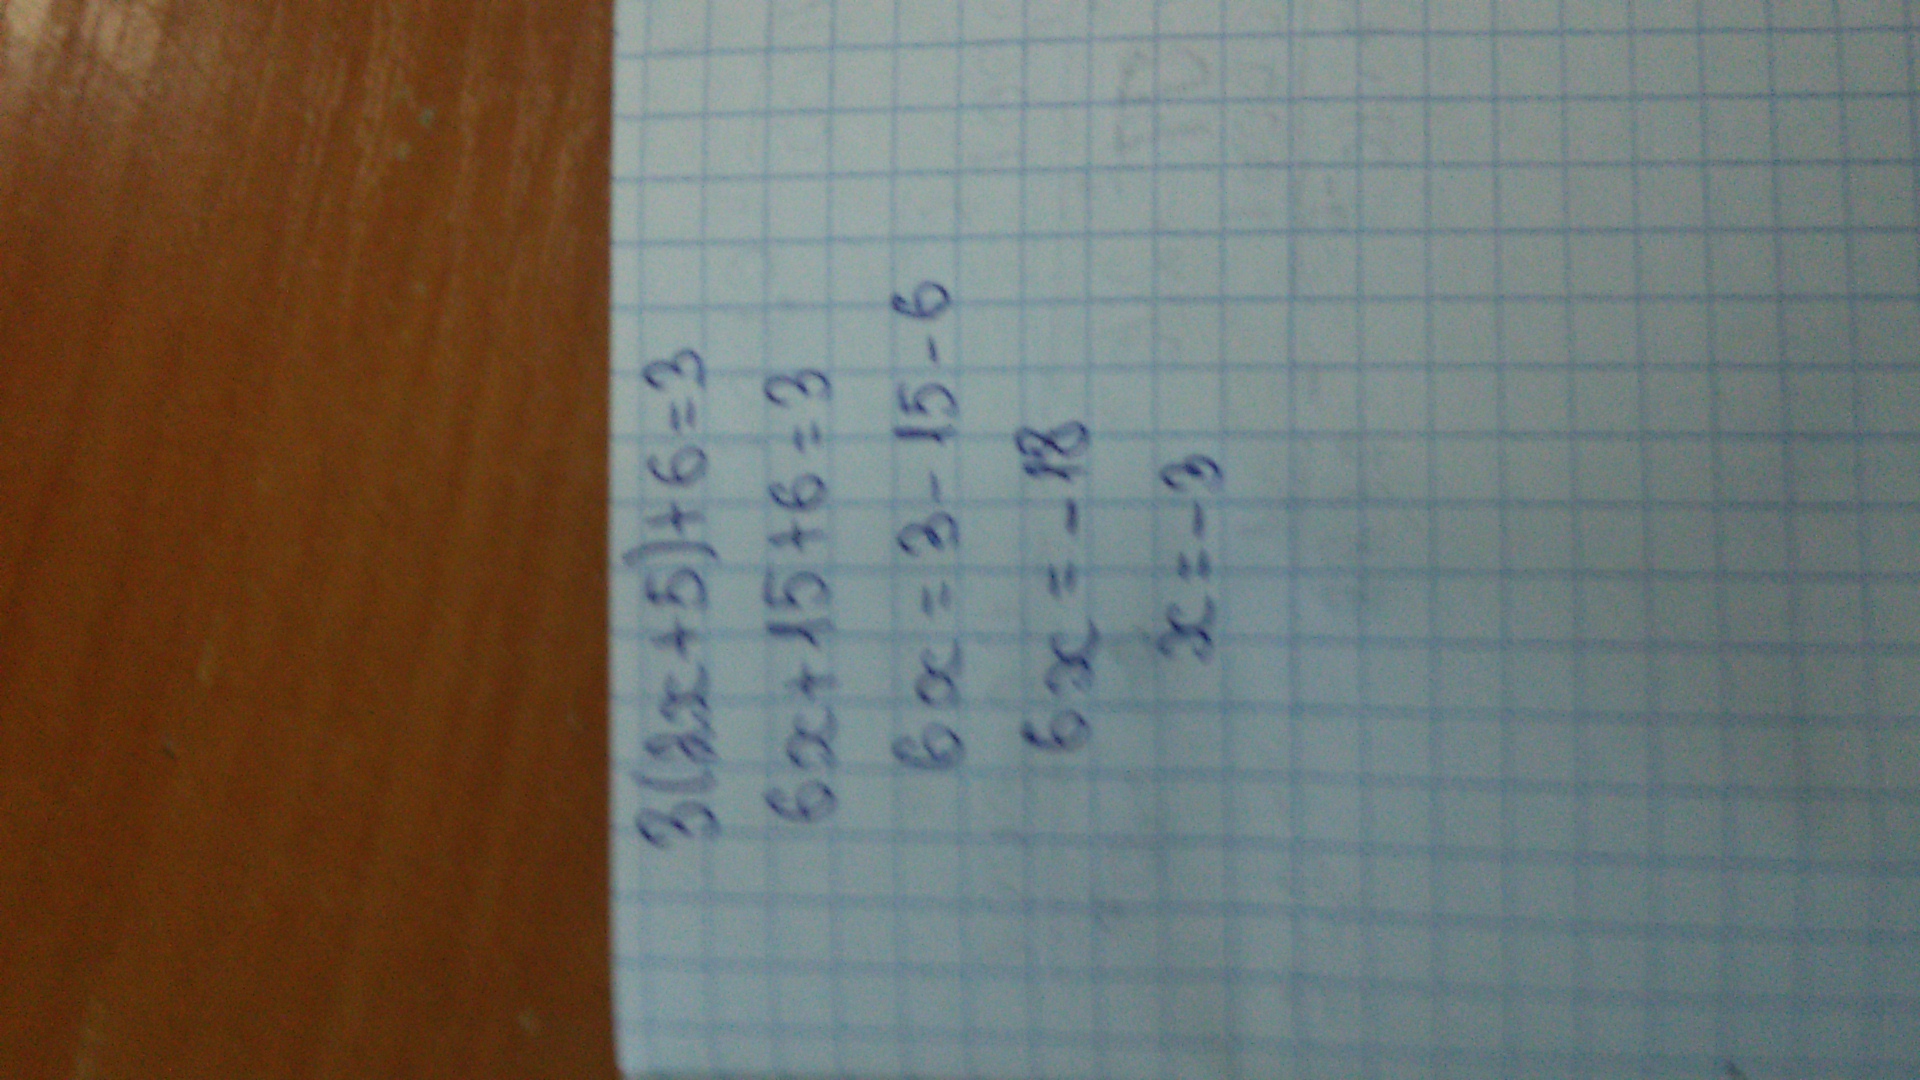 3(2x+5)+6=3
6x+15+6=3
6x=3-15-6
6x=-18
x=-3